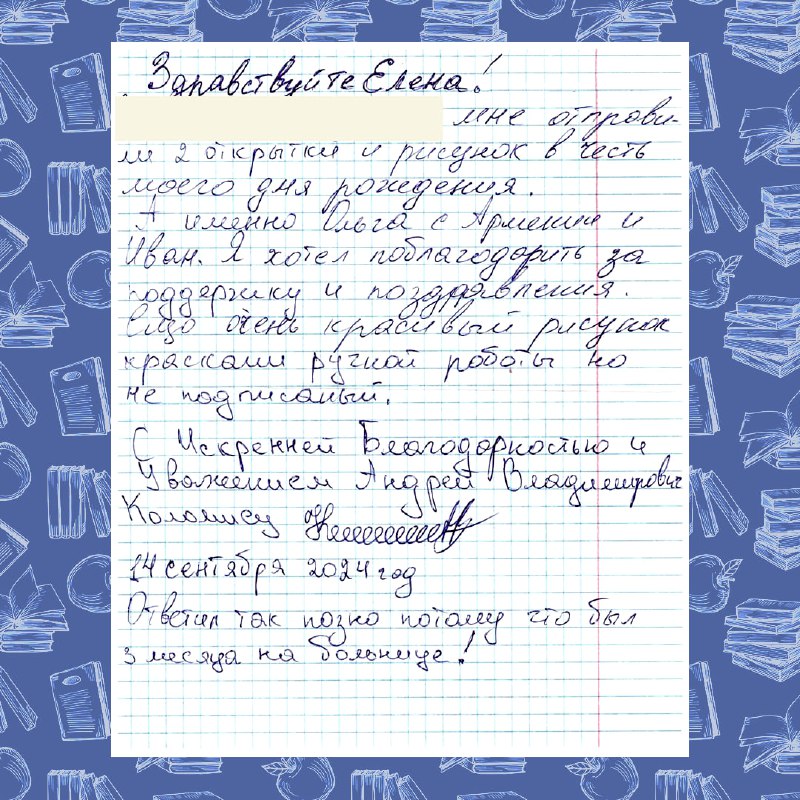 Здравствуйте Елена!
мне отправи-
ли 2 открытки и рисунок в честь
моего дня рождения.
А именно Ольга с Армении и
Иван. Я хотел поблагодорить за
поддержку и поздравления.
Ещо очень красивый рисунок
красками ручной работы но
не подписаный.
С Искренней Благодарностью и
Уважением Андрей Владимирович
Коломису
14 сентября 2024 год
Ответил так позно потому что был
3 месяца на больнице!